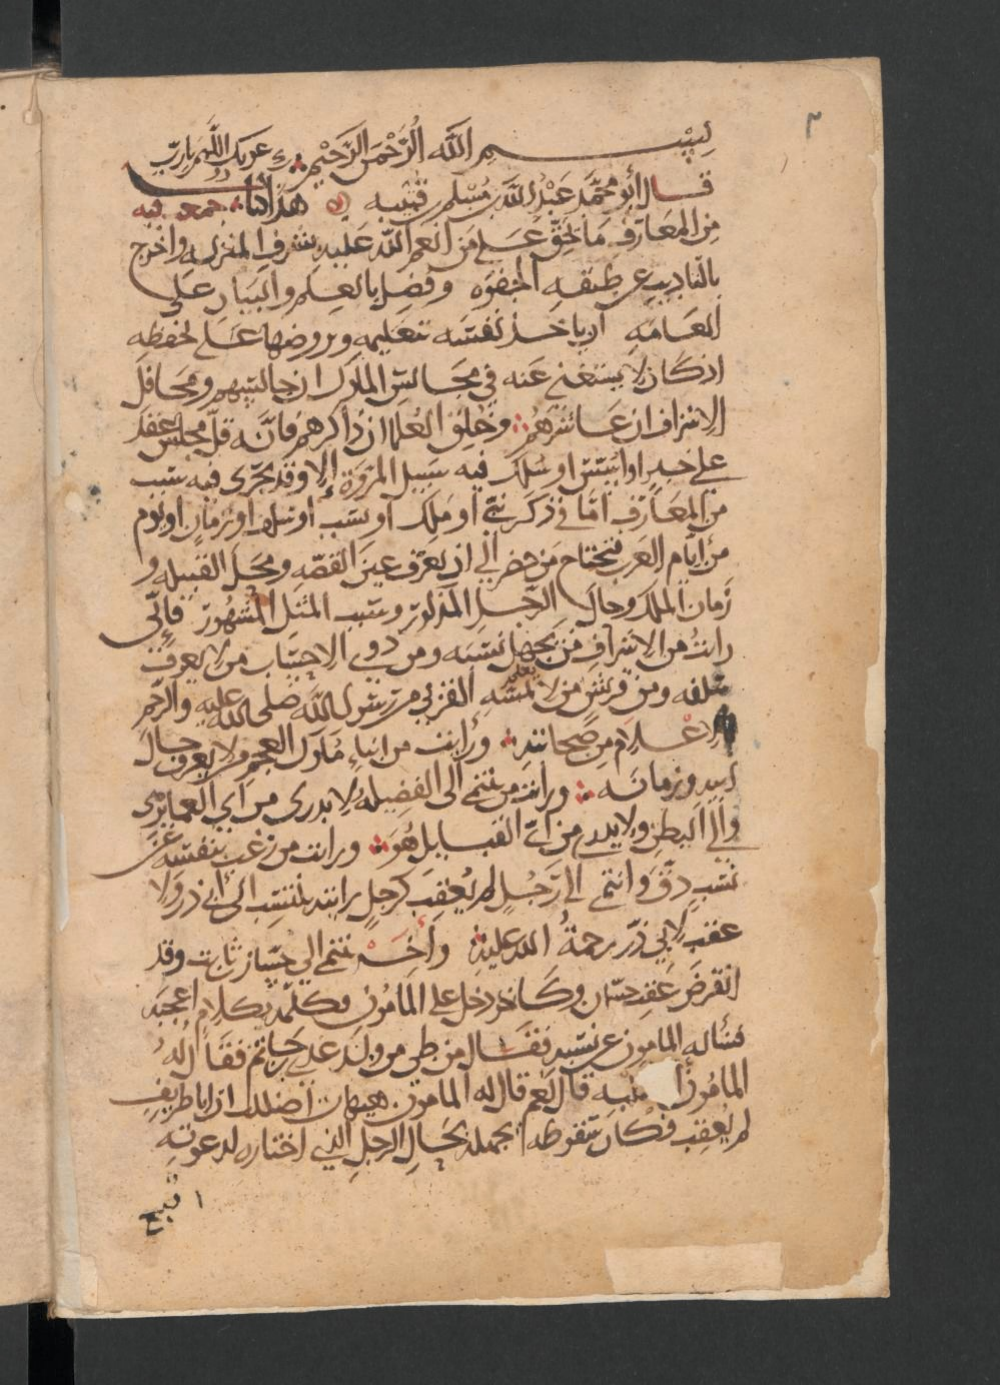 ٢
بسم الله الرحمن الرحيم عونك اللهم يا رب
قال أبو محمد عبد الله بن مسلم بن قتيبه هذا كتاب جمعت فيه
من المعارف ما يحق على من أنعم الله عليه بشرف المنزله واخرج
بالتاديب عن طبقه الحشوه وفضل بالعلم والبيان على
العامه ان ياخذ نفسه بتعليمه ويروضها على تحفظه
اذ كان لا يستغنى عنه في مجالس الملوك ان جالسهم ومحافل
الاشراف ان عاشرهم وحلق العلما ان ذاكرهم فانه قل مجلس عقد
على خير او اسس او سلك فيه سبيل المروة إلا وقد يجرى فيه سبب
من المعارف اما في ذكر نبي أو ملك او نسب أو سلف او زمان او يوم
من ايام العرب فيحتاج من حضر الي ان يعرف عين القصه ومحل القبيله و
زمان الملك وحال الرجل المذكور وسبب المثل المشهور فإني
رايت من الاشراف من يجهل نسبه ومن ذوي الاحساب من لا يعرف
سلفه ومن قريش من لا يعلم تمسه القربي من رسول الله صلى الله عليه والرحم
الاعلام من صحابته ورأيت من ابناء ملوك العجم من لا يعرف حال
ابيه وزمانه ورايت من ينتمى الى الفصيله لا يدرى من اي العماير هي
والي البطن ولا يدرى من اي القبايل هو ورايت من رغب بنفسه عن
نسب دق وانتمى الى رجل لم يعقب كرجل رايته ينتسب الى أبي ذر ولا
عقب لأبي ذر رحمة الله عليه وآخر ينتمي الي حسان بن ثابت وقد
انقرض عقب حسان وكاخر دخل على المامون فكلمه بكلام اعجبه
فسأله المامون عن نسبه فقال من طي من ولد عدي بن حاتم فقال له
المامون قال نعم قال له المامون هيهات اضللت ان ابا طريف
لم يعقب فكان سقوطه بجهله بحال الرجل الذي اختاره لدعوته